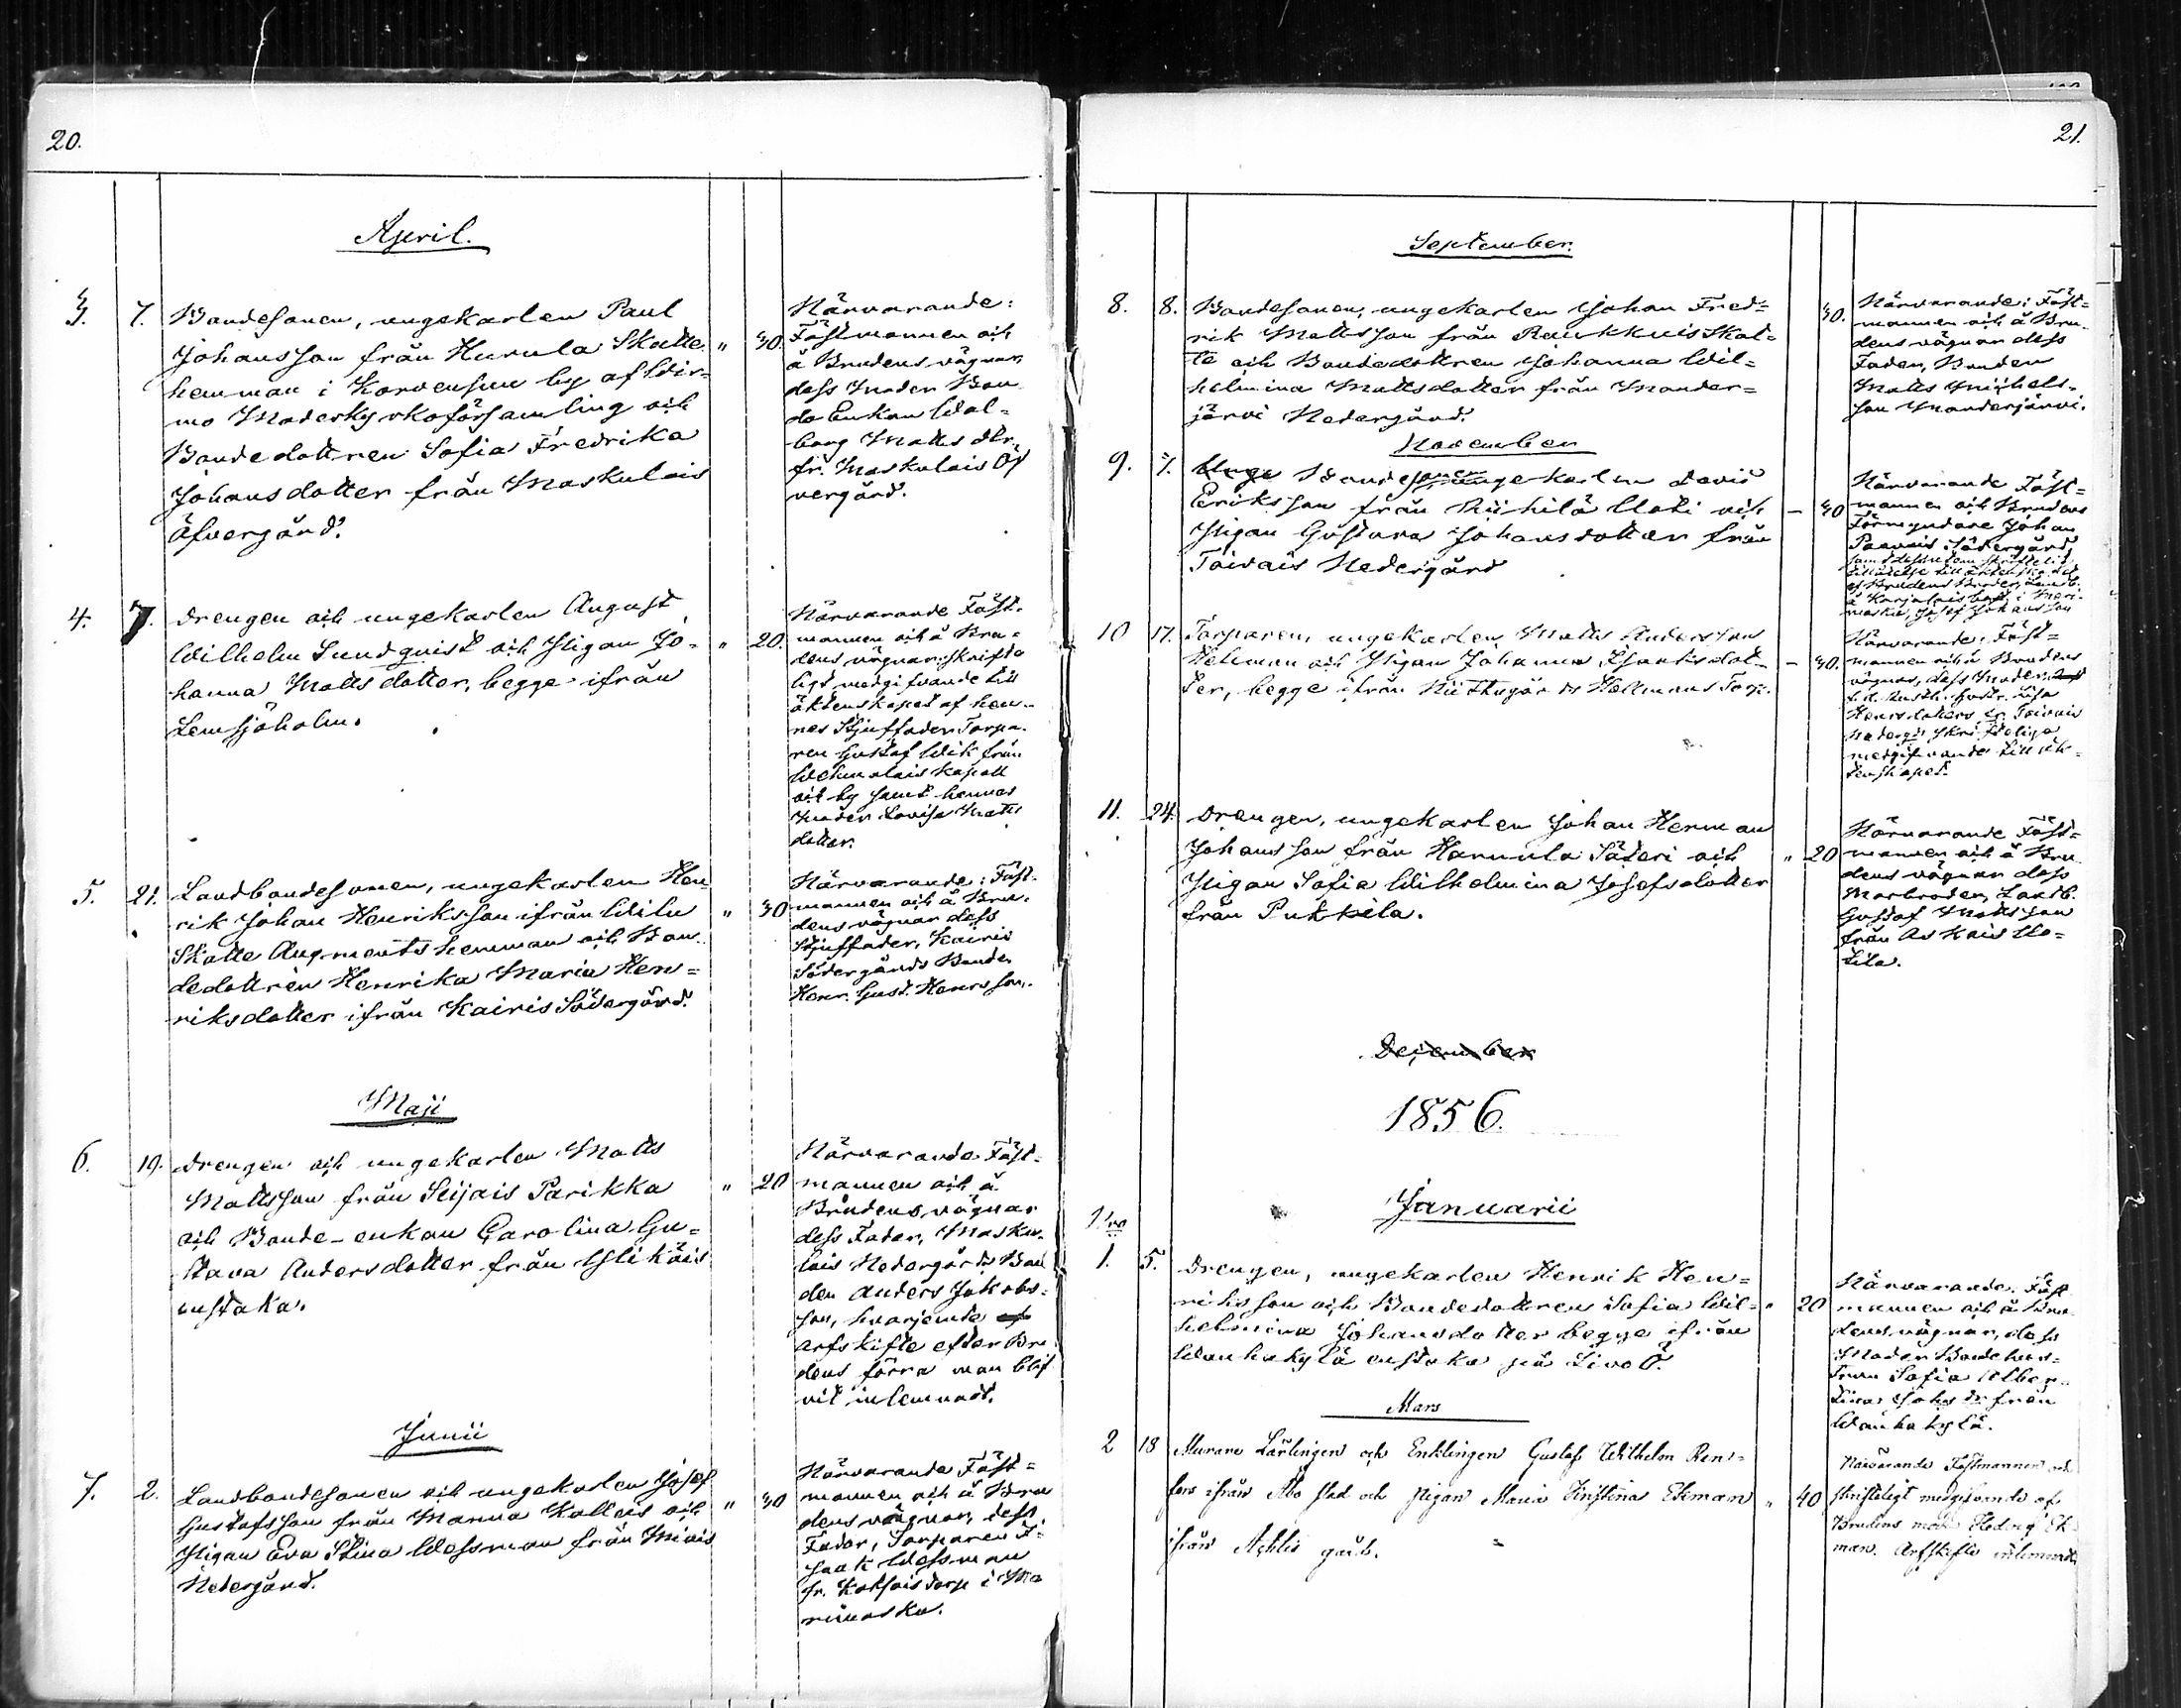 20.
April.
3. 7. Bondesonen, ungekarlen Paul
Johansson från Hurula Skatte
hemman i Korvensuu by af Wir=
mo Moderkyrkoförsamling och
Bondedottren Sofia Fredrika
Johansdotter från Maskulais
öfvergård.
" 30.
Närvarande:
Fästmannen och
å Brudens vägnar
dess Moder Bon
de Enkan Wal=
borg Matts dtr.
fr. Maskulais Öf
vergård.
4. 7. Drengen och ungekarlen August
Wilhelm Sundquist och Pigan Jo=
hanna Mattsdotter, begge ifrån
Lemsjöholm.
" 20.
Närvarande Fäst-
mannen och å Bru=
dens vägnar skrifte
ligt medgifvande till
äktenskapet af hen-
nes Stjuffader Torpa-
ren Gustaf Wik från
Wehmalais Kapell
och by samt hennes
Moder Lovisa Matts
dotter.
5. 21. Landbondesonen, ungekarlen Hen
rik Johan Henriksson ifrån Wilu
Skatte Augmentshemman och Bon-
dedottren Henrika Maria Hen=
riksdotter ifrån Kairis Södergård.
" 30
Närvarande: Fäst-
mannen och å Bru-
dens vägnar dess
Stjuffader, Kairis
Södergårds Bonde
Henr. Gust. Henrsson.
Maji
6. 19. Drengen och ungekarlen Matts
Mattsson från Seijais Parikka
och Bonde-enkan Carolina Gu=
stava Andersdotter från Ylikäis
enstaka.
" 20
Närvarande Fäst-
mannen och å
Brudens vägnar
dess Fader, Masku-
lais Nedergårds Bon
den Anders Jakobs=
son, hvarjemte af
arfskifte efter Bru
dens förra man blif
vit inlemnadt.
Junii
7. 2. Landbondesonen och ungekarlen Josef
Gustafsson från Manna Kallais och
Pigan Eva Stina Wessman från Miais
Nedergård.
" 30
Närvarande Fäst=
mannen och å Bru
dens vägnar, dess
Fader, Torparen I=
saak Wessman
fr. Katsais torp i Me
rimasku.
21.
September.
8. 8. Bondesonen, ungekarlen Johan Fred=
rik Mattsson från Skat=
te och Bondedottren Johanna Wil=
helmina Mattsdotter från Mander=
järvi Nedergård.
30.
Närvarande: Fäst=
mannen och å Bru-
dens vägnar dess
Fader, Bonden
Matts Michels-
son Manderjärvi.
November
9. 7. Unge Bondesonen ungekarlen David
Eriksson från Riihilä Uoti och
Pigan Gustava Johansdotter från
Toivais Nedergård
– 30
Närvarande Fäst=
mannen och Brudens
Förmyndare Johan
Paavais Södergård,
samt dessutom skriftelig
tillåtelse till äktenskapet
af Brudens Broder Landb.
å Karjalais i Meri-
masku, Josef Johansson
10 17. Torparen, ungekarlen Matts Andersson
Hellman och Pigan Johanna Isaksdot-
ter, begge ifrån Niittugårds Hellmans Torp.
– 30.
Närvarande: Fäst=
mannen och å Brudens
vägnar, dess Moder,
Lisa
Henrsdotters fr. Toivais
Nedergd skrifteliga
medgifvande till äk-
tenskapet.
11. 24. Drengen, ungekarlen Johan Herman
Johansson från Hannula Säteri och
Pigan Sofia Wilhelmina Josefsdotter
från Pukkila.
" 20
Närvarande Fäst=
mannen och å Bru
dens vägnar dess
Morbroder, Landb.
Gustaf Mattsson
från Askais Uo=
tila.
December
1856.
Januarii
N:ro
1. 5. Drengen, ungekarlen Henrik Hen=
riksson och Bondedottren Sofia Wil=
helmina Johansdotter begge ifrån
Wanhakylä enstaka på Livo Ö.
" 20
Närvarande Fäst
mannen och å Bru
dens vägnar, dess
Moder Bondehus=
trun Sofia Alber-
tina Johs dr från
Wanhakylä.
Mars
2 18 Murare Lärlingen och Enklingen Gustaf Wilhelm Ren=
fors ifrån Åbo stad och Pigan Maria Kristina Ekman
ifrån gård.
" 40
Närvarande Fästmannen och
skriftligt medgifvande af
Brudens mor Hedvig Ek
man. Arfskifte inlemnadt